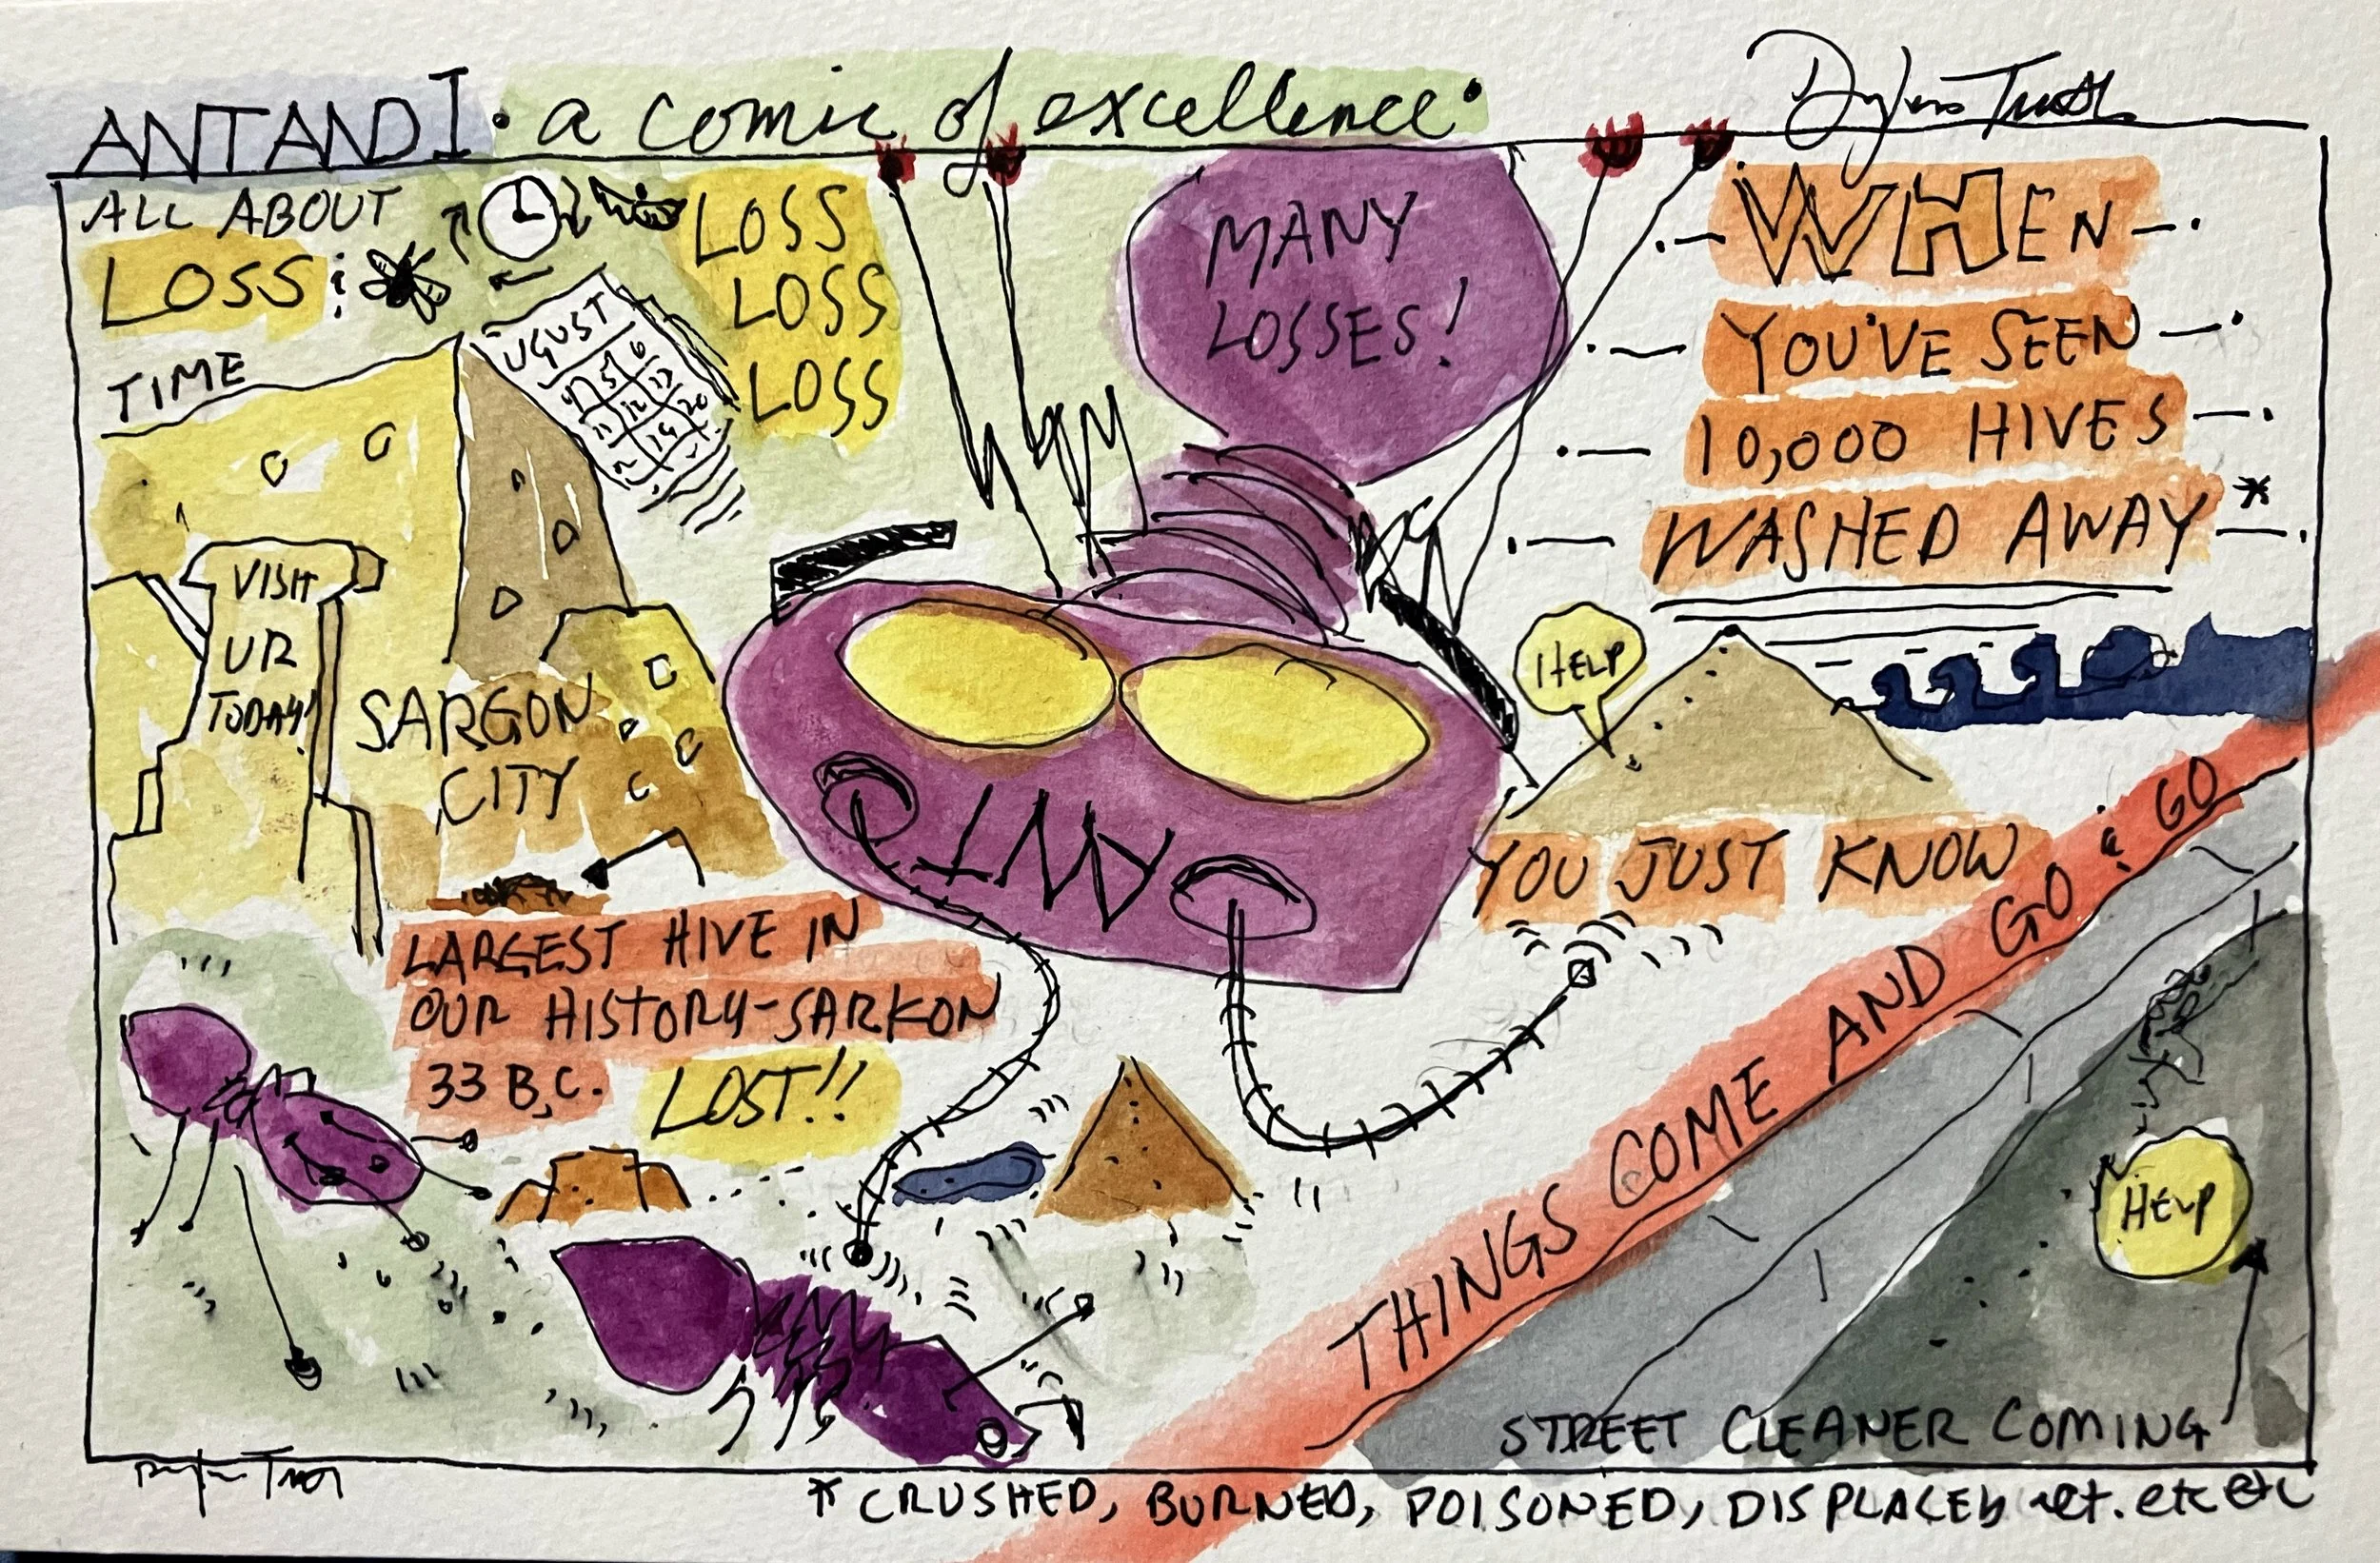 ANT AND I • a comic of excellence •
ALL ABOUT
LOSS :
TIME
LOSS
LOSS
LOSS
UGUST
MANY
LOSSES!
WHEN
YOU'VE SEEN
10,000 HIVES
WASHED AWAY *
VISIT
UR
TODAY!
SARGON
CITY
HELP
ANT
YOU JUST KNOW
THINGS COME AND GO & GO
LARGEST HIVE IN
OUR HISTORY-SARKON
33 B.C. LOST!!
HELP
STREET CLEANER COMING
* CRUSHED, BURNED, POISONED, DISPLACED ect. etc etc